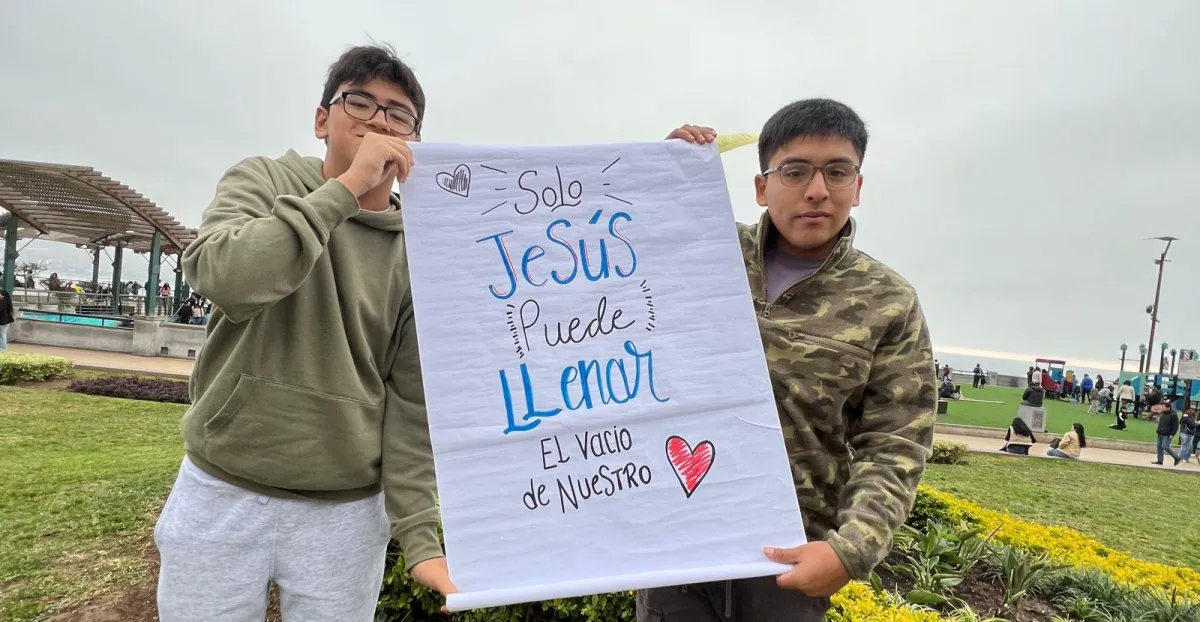 Solo
Jesús
Puede
LLenar
EL Vacío
de NuesTRO